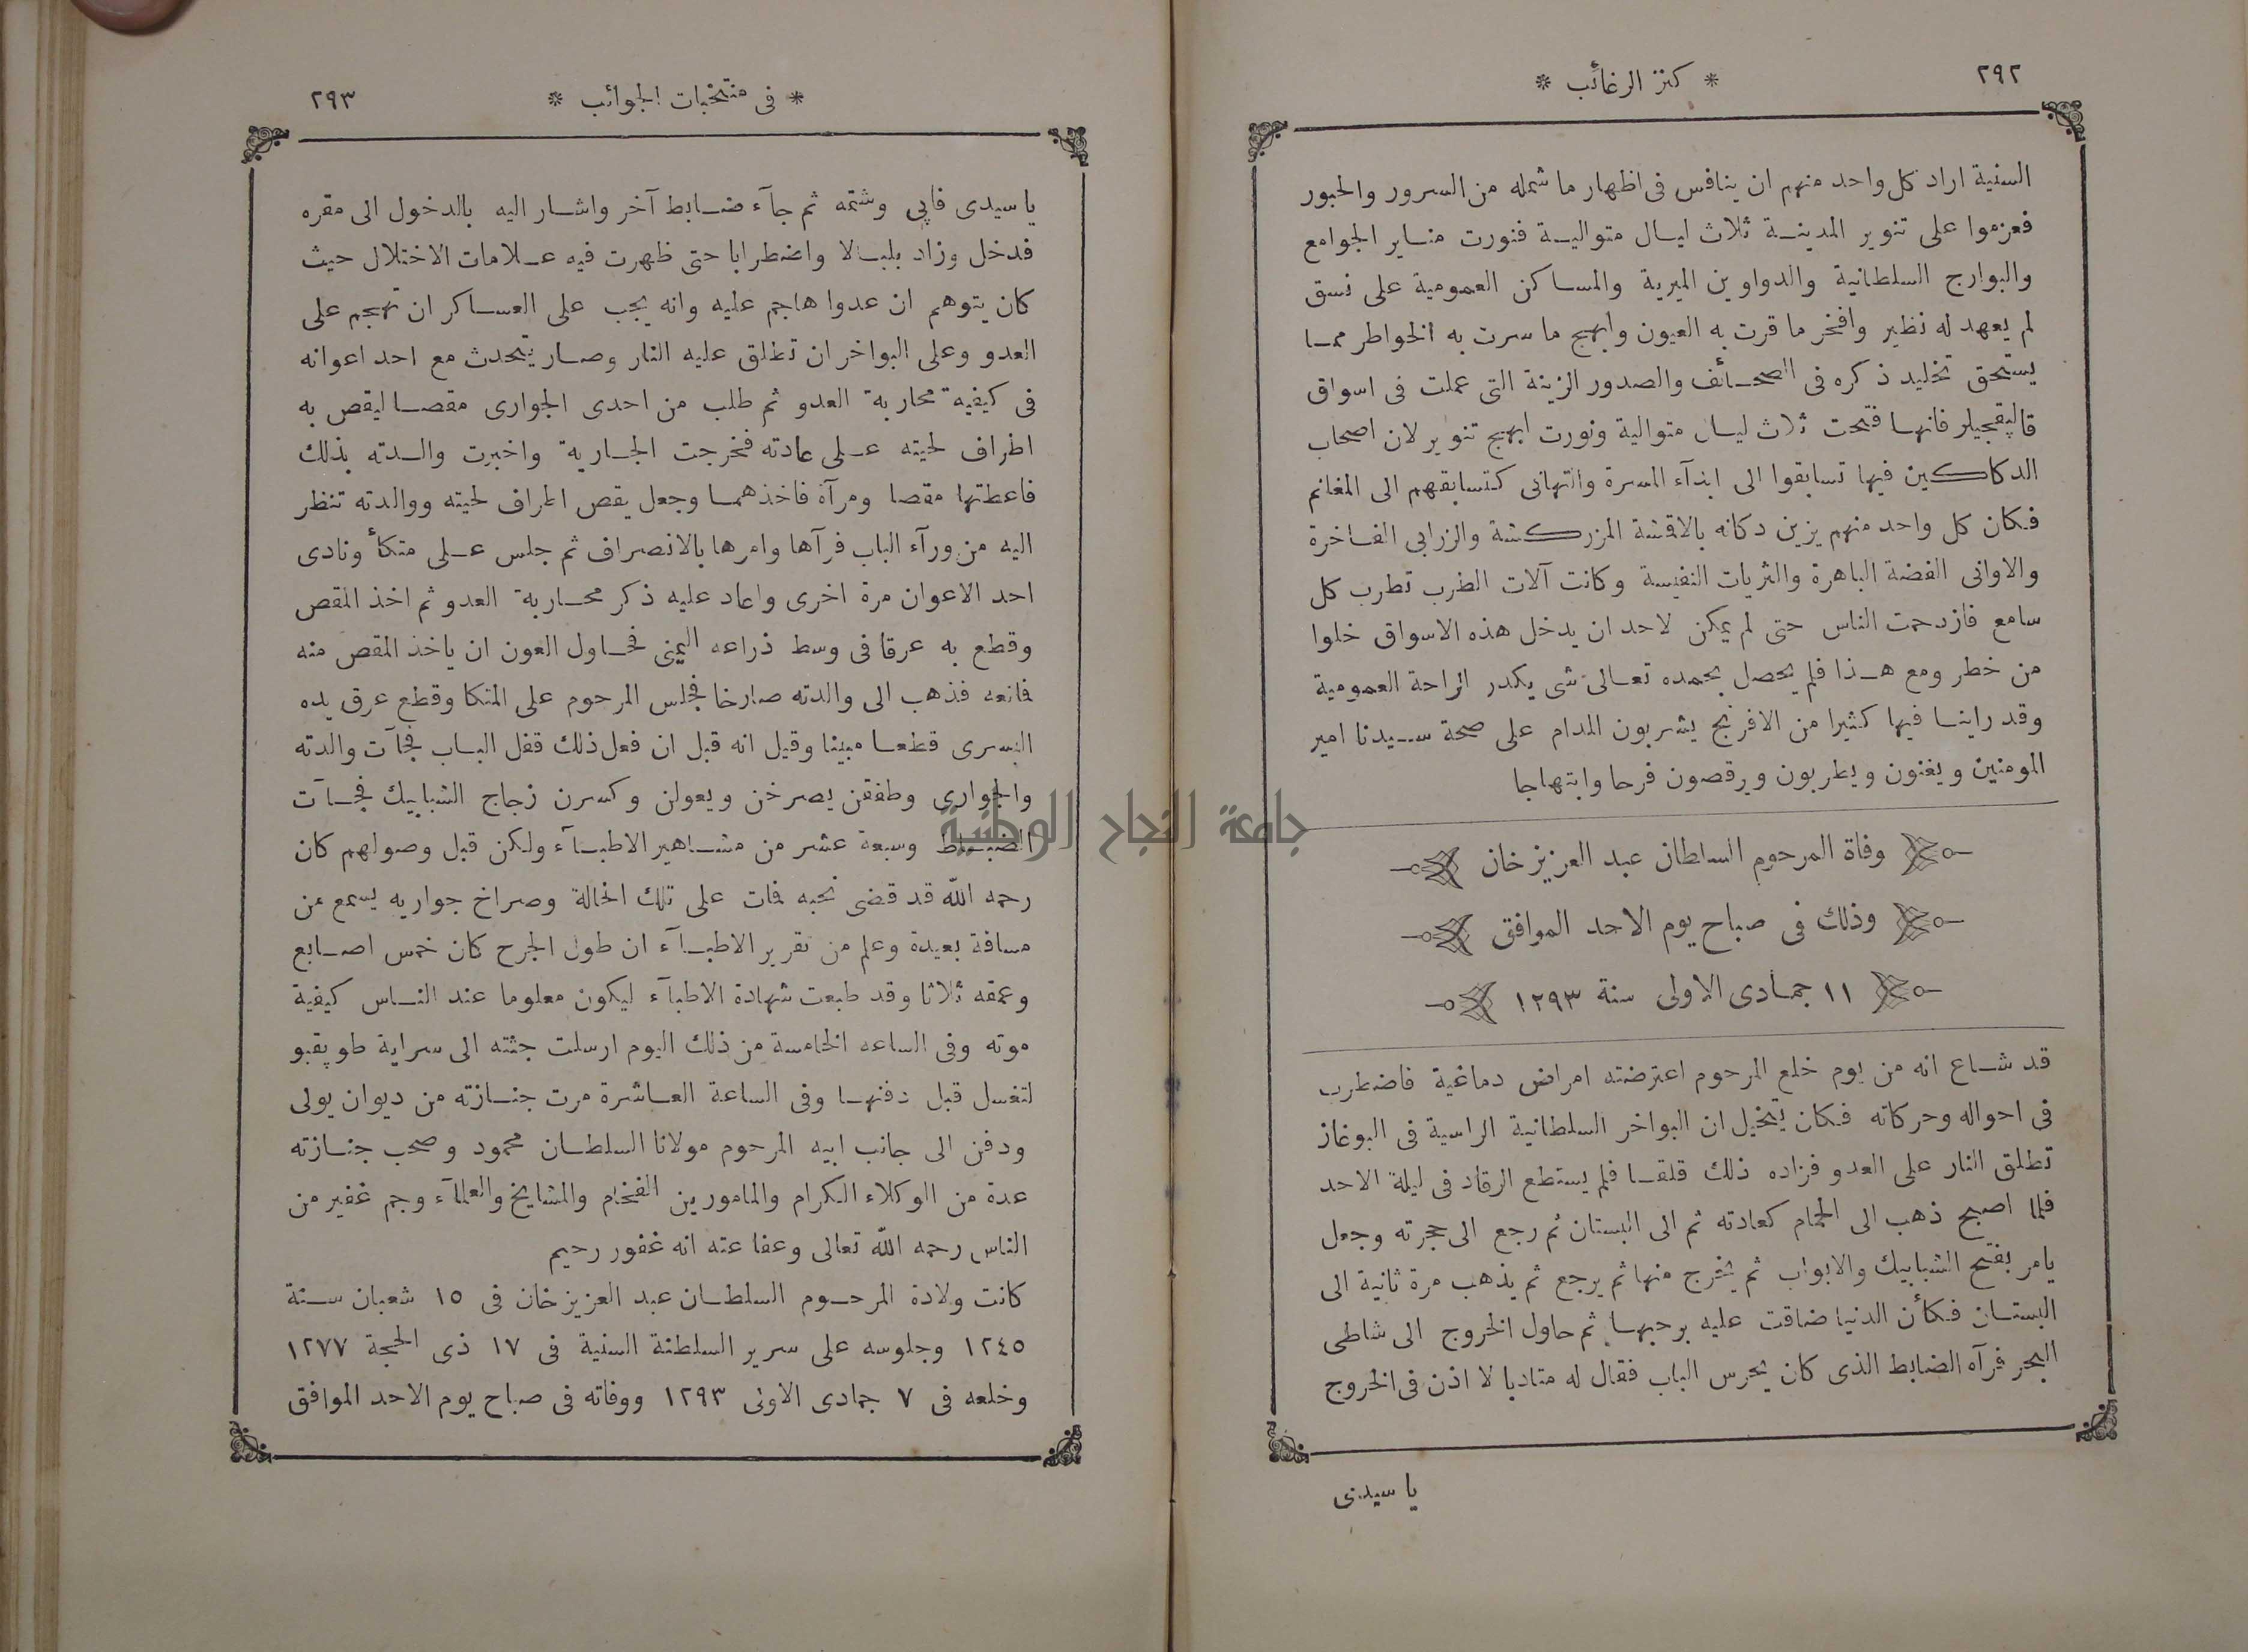 ٢٩٢
* كنز الرغائب *
السنية اراد كل واحد منهم ان ينافس فى اظهار ما شمله من السرور والحبور
فعزموا على تنوير المدينة ثلاث ليال متوالية فنورت مناير الجوامع
والبوارج السلطانية والدواوين الميرية والمساكن العمومية على نسق
لم يعهد له نظير وافخر ما قرت به العيون وابهج ما سرت به الخواطر مما
يستحق تخليد ذكره فى الصحائف والصدور الزينة التى عملت فى اسواق
قالپقجيلر فانها فتحت ثلاث ليال متوالية ونورت ابهج تنوير لان اصحاب
الدكاكين فيها تسابقوا الى ابدآء المسرة والتهانى كتسابقهم الى المغانم
فكان كل واحد منهم يزين دكانه بالاقشة المزركشة والزرابى الفاخرة
والاوانى الفضة الباهرة والثريات النفيسة وكانت آلات الطرب تطرب كل
سامع فازدحمت الناس حتى لم يمكن لاحد ان يدخل هذه الاسواق خلوا
من خطر ومع هذا فلم يحصل بحمده تعالى شى يكدر الراحة العمومية
وقد راينا فيها كثيرا من الافرنج يشربون المدام على صحة سيدنا امير
المومنين ويغنون ويطربون ويرقصون فرحا وابتهاجا
وفاة المرحوم السلطان عبد العزيز خان
وذلك فى صباح يوم الاحد الموافق
١١ جمادى الاولى سنة ١٢٩٣
قد شاع انه من يوم خلع المرحوم اعترضته امراض دماغية فاضطرب
فى احواله وحركاته فكان يتخيل ان البواخر السلطانية الراسية فى البوغاز
تطلق النار على العدو فزاده ذلك قلقا فلم يستطع الرقاد فى ليلة الاحد
فلما اصبح ذهب الى الحمام كعادته ثم الى البستان ثم رجع الى حجرته وجعل
يامر بفتح الشبابيك والابواب ثم يخرج منها ثم يرجع ثم يذهب مرة ثانية الى
البستان فكأن الدنيا ضاقت عليه برحبها ثم حاول الخروج الى شاطى
البحر فرآه الضابط الذى كان يحرس الباب فقال له متادبا لا اذن فى الخروج
يا سيدى
* فى منتخبات الجوائب *
٢٩٣
يا سيدى فابى وشتمه ثم جآء ضابط آخر واشار اليه بالدخول الى مقره
فدخل وزاد بلبالا واضطرابا حتى ظهرت فيه علامات الاختلال حيث
كان يتوهم ان عدوا هاجم عليه وانه يجب على العساكر ان تهجم على
العدو وعلى البواخر ان تطلق عليه النار وصار يتحدث مع احد اعوانه
فى كيفية محاربة العدو ثم طلب من احدى الجوارى مقصا ليقص به
اطراف لحيته على عادته فخرجت الجارية واخبرت والدته بذلك
فاعطتها مقصا ومرآة فاخذهما وجعل يقص اطراف لحيته ووالدته تنظر
اليه من ورآء الباب فرآها وامرها بالانصراف ثم جلس على متكأ ونادى
احد الاعوان مرة اخرى واعاد عليه ذكر محاربة العدو ثم اخذ المقص
وقطع به عرقا فى وسط ذراعه اليمنى فحاول العون ان ياخذ المقص منه
فمانعه فذهب الى والدته صارخا فجلس المرحوم على المتكا وقطع عرق يده
اليسرى قطعا مبينا وقيل انه قبل ان فعل ذلك قفل الباب فجآت والدته
والجوارى وطفقن يصرخن ويعولن وكسرن زجاج الشبابيك فجآت
الضباط وسبعة عشر من مشاهير الاطبآء ولكن قبل وصولهم كان
رحمه الله قد قضى نحبه فمات على تلك الحالة وصراخ جواريه يسمع من
مسافة بعيدة وعلم من تقرير الاطبآء ان طول الجرح كان خمس اصابع
وعمقه ثلاثا وقد طبعت شهادة الاطبآء ليكون معلوما عند الناس كيفية
موته وفى الساعه الخامسة من ذلك اليوم ارسلت جثته الى سراية طوپقبو
لتغسل قبل دفنها وفى الساعة العاشرة مرت جنازته من ديوان يولى
ودفن الى جانب ابيه المرحوم مولانا السلطان محمود وصحب جنازته
عدة من الوكلاء الكرام والمامورين الفخام والمشايخ والعلمآء وجم غفير من
الناس رحمه الله تعالى وعفا عنه انه غفور رحيم
كانت ولادة المرحوم السلطان عبد العزيز خان فى ١٥ شعبان سنة
١٢٤٥ وجلوسه على سرير السلطنة السنية فى ١٧ ذى الحجة ١٢٧٧
وخلعه فى ٧ جمادى الاولى ١٢٩٣ ووفاته فى صباح يوم الاحد الموافق
جامعة النجاح الوطنية